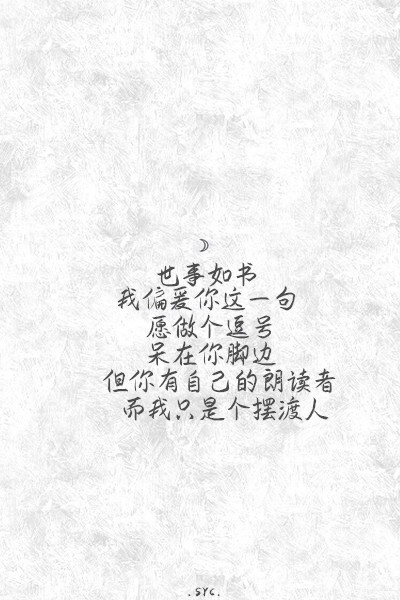 ☽
世事如书
我偏爱你这一句
愿做个逗号
呆在你脚边
但你有自己的朗读者
而我只是个摆渡人
. SYC.